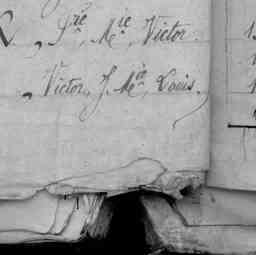 R., Pre, Mie, Victor.
, Victor, J. Mie, Louis,